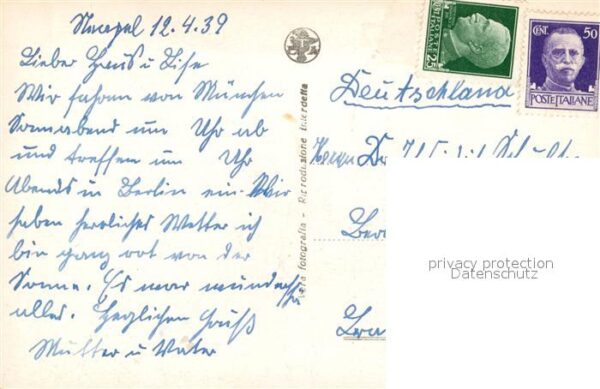 Neapel 12.4.39
Lieber Hans u Lise
Wir fahren von München
Sonnabend um Uhr ab
und treffen um Uhr
Abends in Berlin ein. Wir
haben herrliches Wetter ich
bin ganz rot von der
Sonne. Es war
alles. Herzlichen Gruß
Mutter u Vater
Vera fotografia - Riproduzione interdetta
POSTE ITALIANE
CENT. 25
CENT. 50
POSTE ITALIANE
Deutschland
Herrn Dr
privacy protection
Datenschutz